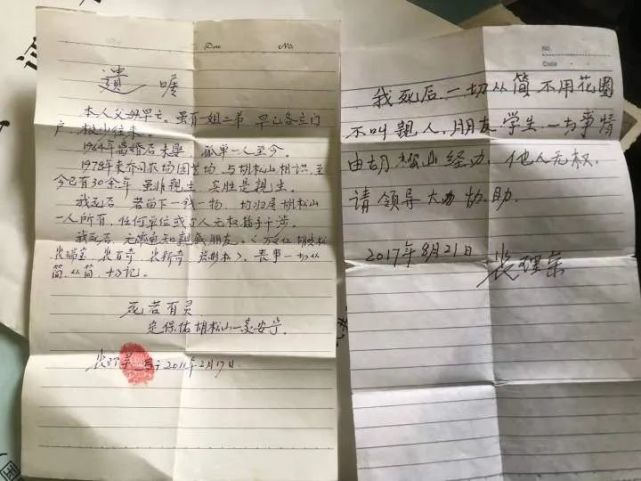 Date No.
遗嘱
本人父母早亡,虽有一姐二弟,早已各立门
户,极少往来。
1964年离婚后未娶,孤单一人至今。
1978年来乔司农场园艺场,与胡松山相识,至
今已有30余年,虽非亲生,实胜是亲生。
我死后,若留下一钱一物,均归属胡松山
一人所有,任何单位或个人无权插手干涉。
我死后,无须通知亲戚朋友。
丧事一切从
简,从简,切记。
死若有灵
定保佑胡松山一家安宁。
于2011年2月17日
NO.
Date
我死后一切从简不用花圈
不叫亲人,朋友学生,一切事情
由胡松山经办,他人无权.
请领导大力协助.
2017年8月21日
国